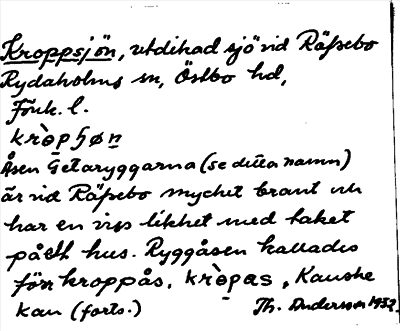 Kroppsjön, utdikad sjö vid Räfsebo
Rydaholms sn, Östbo hd,
Jönk. l.
kròpʃøn
Åsen Getaryggarna (se detta namn)
är vid Räfsebo mycket brant och
har en viss likhet med taket
på ett hus. Ryggåsen kallades
förr kroppås, kròpas, Kanske
kan (forts.) Th. Andersson 1932.